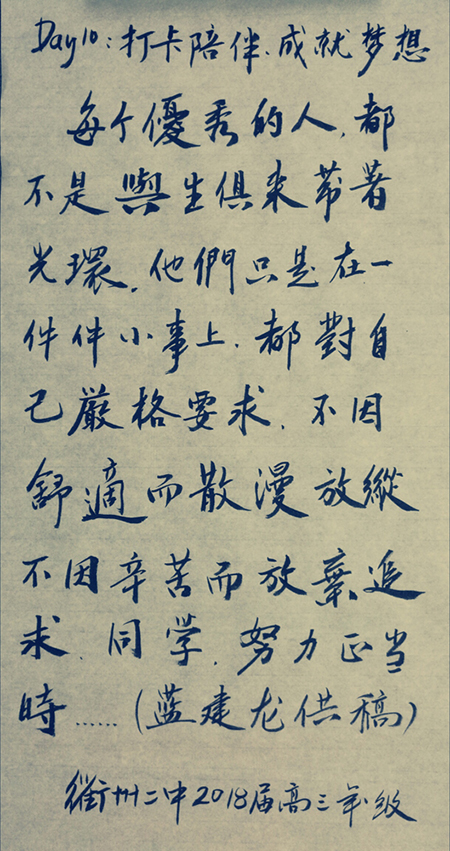 Day10:打卡陪伴、成就梦想
每个優秀的人,都
不是與生俱来带著
光環,他們只是在一
件件小事上,都對自
己厳格要求,不因
舒適而散漫放縱
不因辛苦而放棄追
求,同学,努力正当
時……(蓝建龙供稿)
衢州二中2018届高三年级